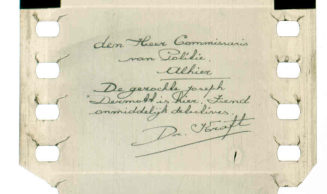 den Heer Commissaris
van Politie
Alhier
De gezochte Joseph
Dermott is hier, Zend
onmiddelijk detectives
Dr.